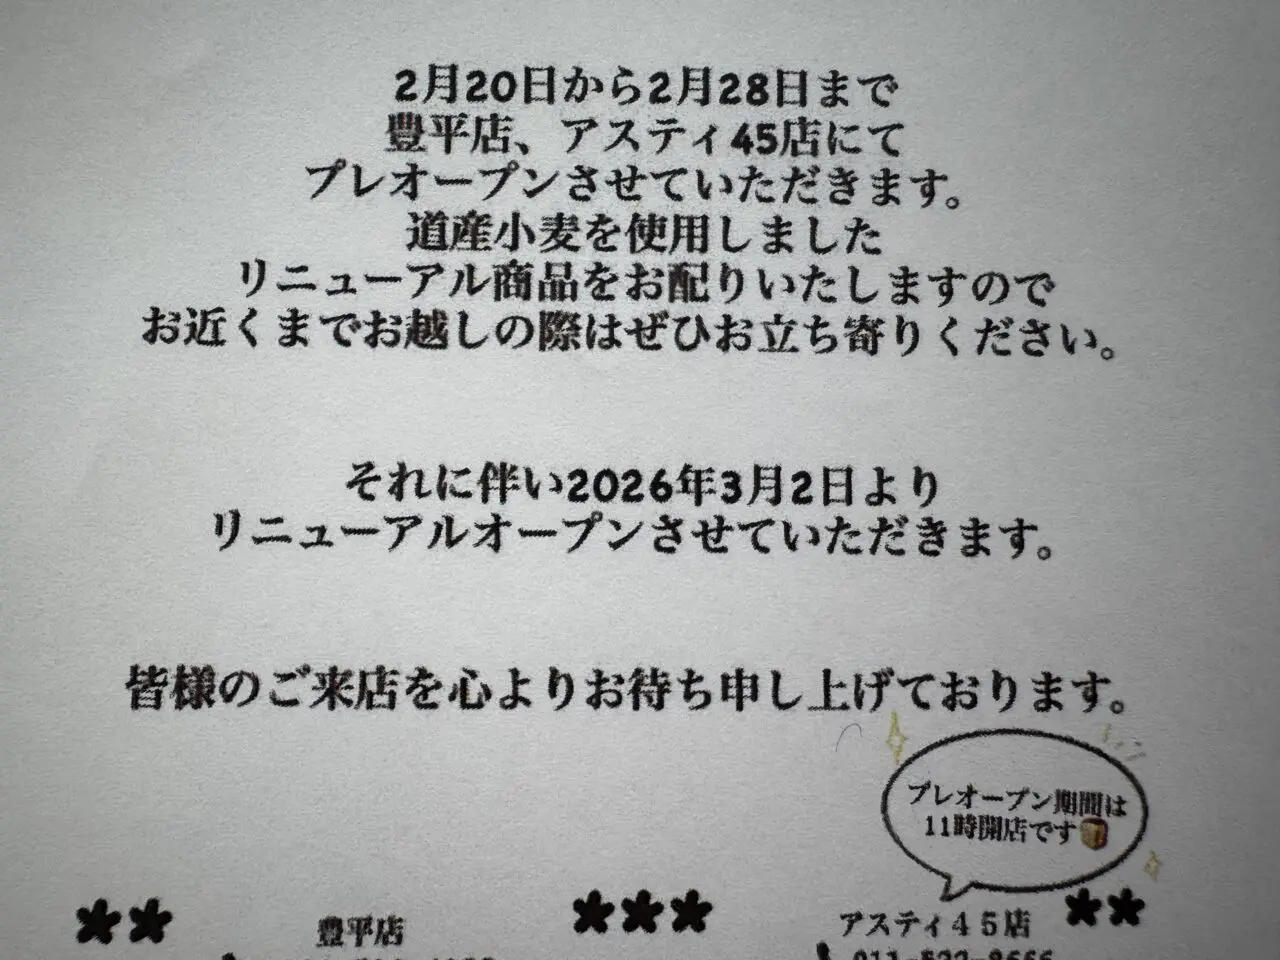 2月20日から2月28日まで
豊平店、アスティ45店にて
プレオープンさせていただきます。
道産小麦を使用しました
リニューアル商品をお配りいたしますので
お近くまでお越しの際はぜひお立ち寄りください。
それに伴い2026年3月2日より
リニューアルオープンさせていただきます。
皆様のご来店を心よりお待ち申し上げております。
プレオープン期間は
11時開店です
豊平店
アスティ45店